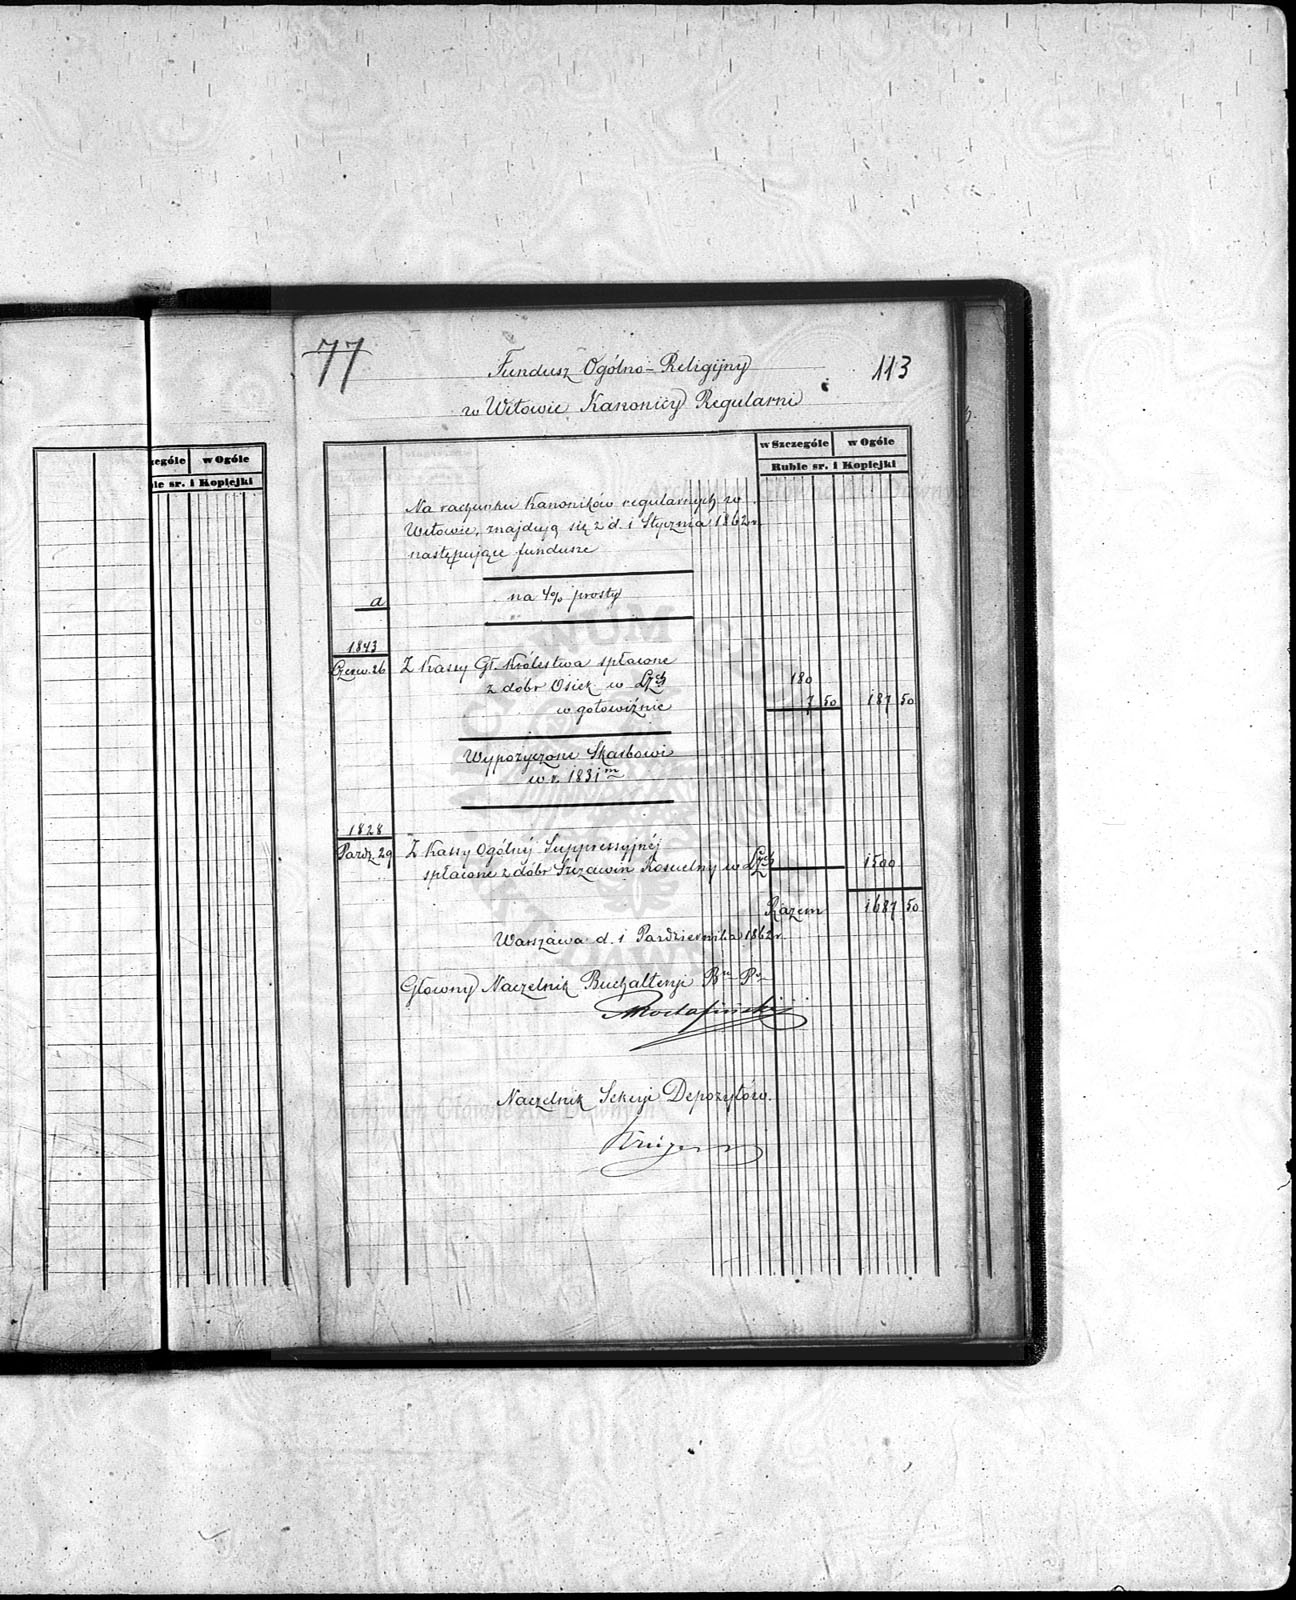 zególe w Ogóle
le sr. i Kopiejki
77
113
Fundusz Ogólno-Religijny
w Witowie Kanonicy Regularni
w Szczególe w Ogóle
Ruble sr. i Kopiejki
Na rachunku Kanoników regularnych w
Witowie, znajdują się z d. 1 Stycznia 1862 r.
następujące fundusze
a na 4% prosty
1843
Czerw. 26 Z Kassy Gł. Królestwa spłacone
z dóbr Osiek w 180
w gotowiźnie 7 50 187 50
Wypożyczone Skarbowi
w r. 1831 m
1828
Paźdz. 29 Z Kassy Ogólnéj Suppressyjnéj
spłacone z dóbr Szczawin Kościelny w 1500
Razem 1687 50
Warszawa d. 1 Października 1862 r.
Główny Naczelnik Buchalteryi
Naczelnik Sekcyi Depozytów.
Krüger
ARCHIWUM GŁÓWNE AKT DAWNYCH
Archiwum Główne Akt Dawnych